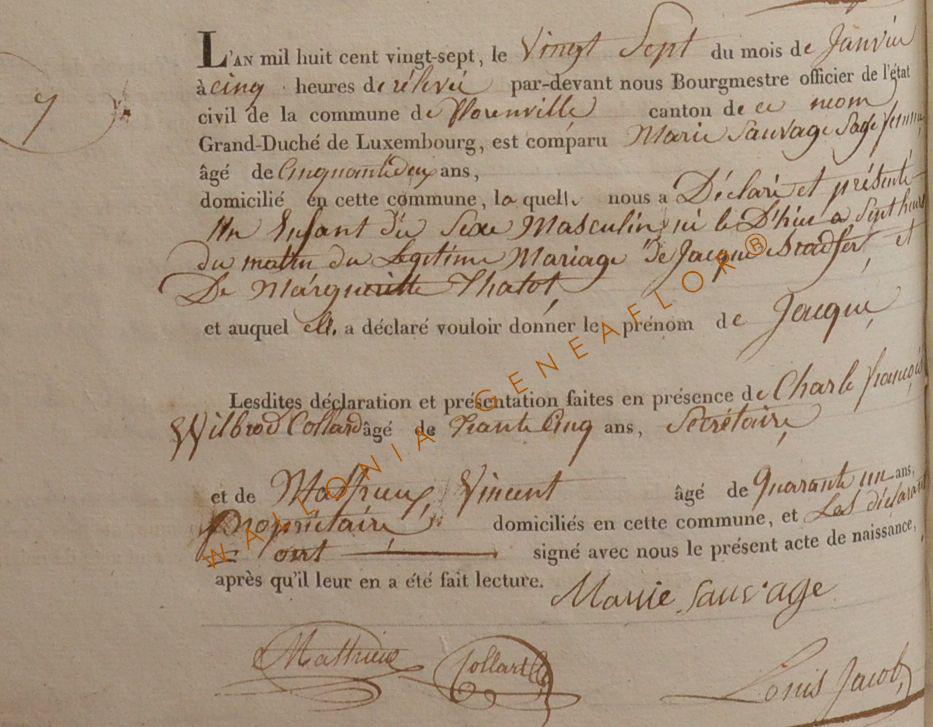 7
L'AN mil huit cent vingt-sept, le Vingt Sept du mois de Janvier
à cinq heures de rélévée par-devant nous Bourgmestre officier de l'état
civil de la commune de Florenville canton de ce nom
Grand-Duché de Luxembourg, est comparu Marie Sauvage Sage femme
âgé de Cinquante deux ans,
domicilié en cette commune, la quelle nous a Déclaré et présenté
Un Enfant du Sexe Masculin, né le D'hier a Sept heure
du matin du Legitime Mariage De Jacque Stadfert, et
De Margueritte Thatot,
et auquel elle a déclaré vouloir donner le prénom de Jacque,
Lesdites déclaration et présentation faites en présence de Charle françois
Wilbrod Collard âgé de Trante Cinq ans, Secrétaire,
et de Mathieu, Vincent âgé de Quarante un ans,
Propriétaire, domiciliés en cette commune, et Les déclarant
ont signé avec nous le présent acte de naissance,
après qu'il leur en a été fait lecture.
Marie Sauvage
Mathieu Collard Louis Jacob,
WALLONIA GENEAFLOR®